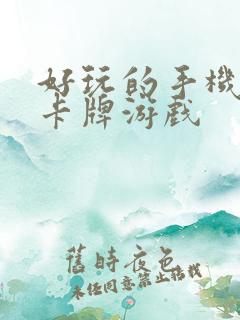 好玩的手機
卡牌游戲
舊時夜色
未經同意禁止搭載